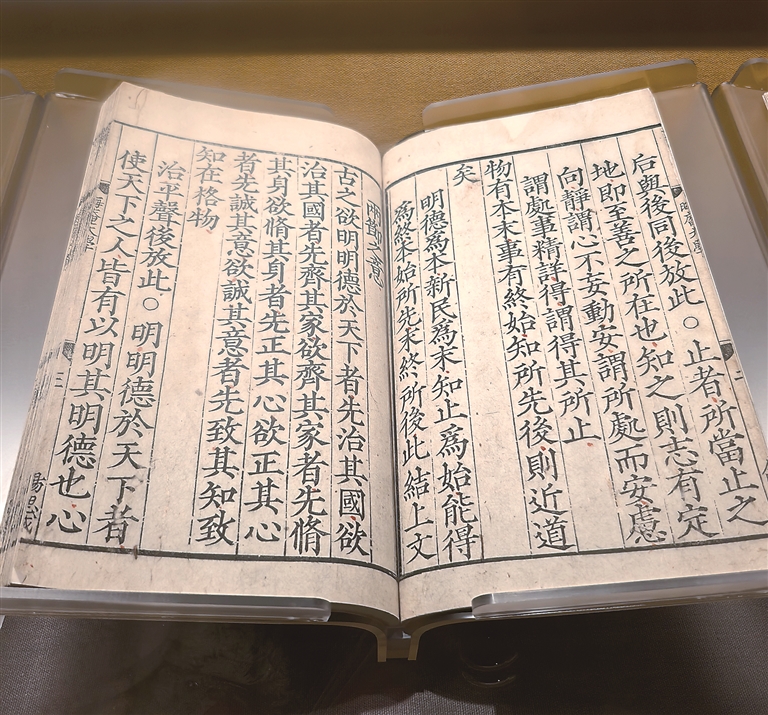 后與後同後放此○止者所當止之
地即至善之所在也知之則志有定
向靜謂心不妄動安謂所處而安慮
謂處事精詳得謂得其所止
物有本末事有終始知所先後則近道
矣
明德爲本新民爲末知止爲始能得
爲終本始所先末終所後此結上文
兩節之意
古之欲明明德於天下者先治其國欲
治其國者先齊其家欲齊其家者先脩
其身欲脩其身者先正其心欲正其心
者先誠其意欲誠其意者先致其知致
知在格物
治平聲後放此○明明德於天下者
使天下之人皆有以明其明德也心
三